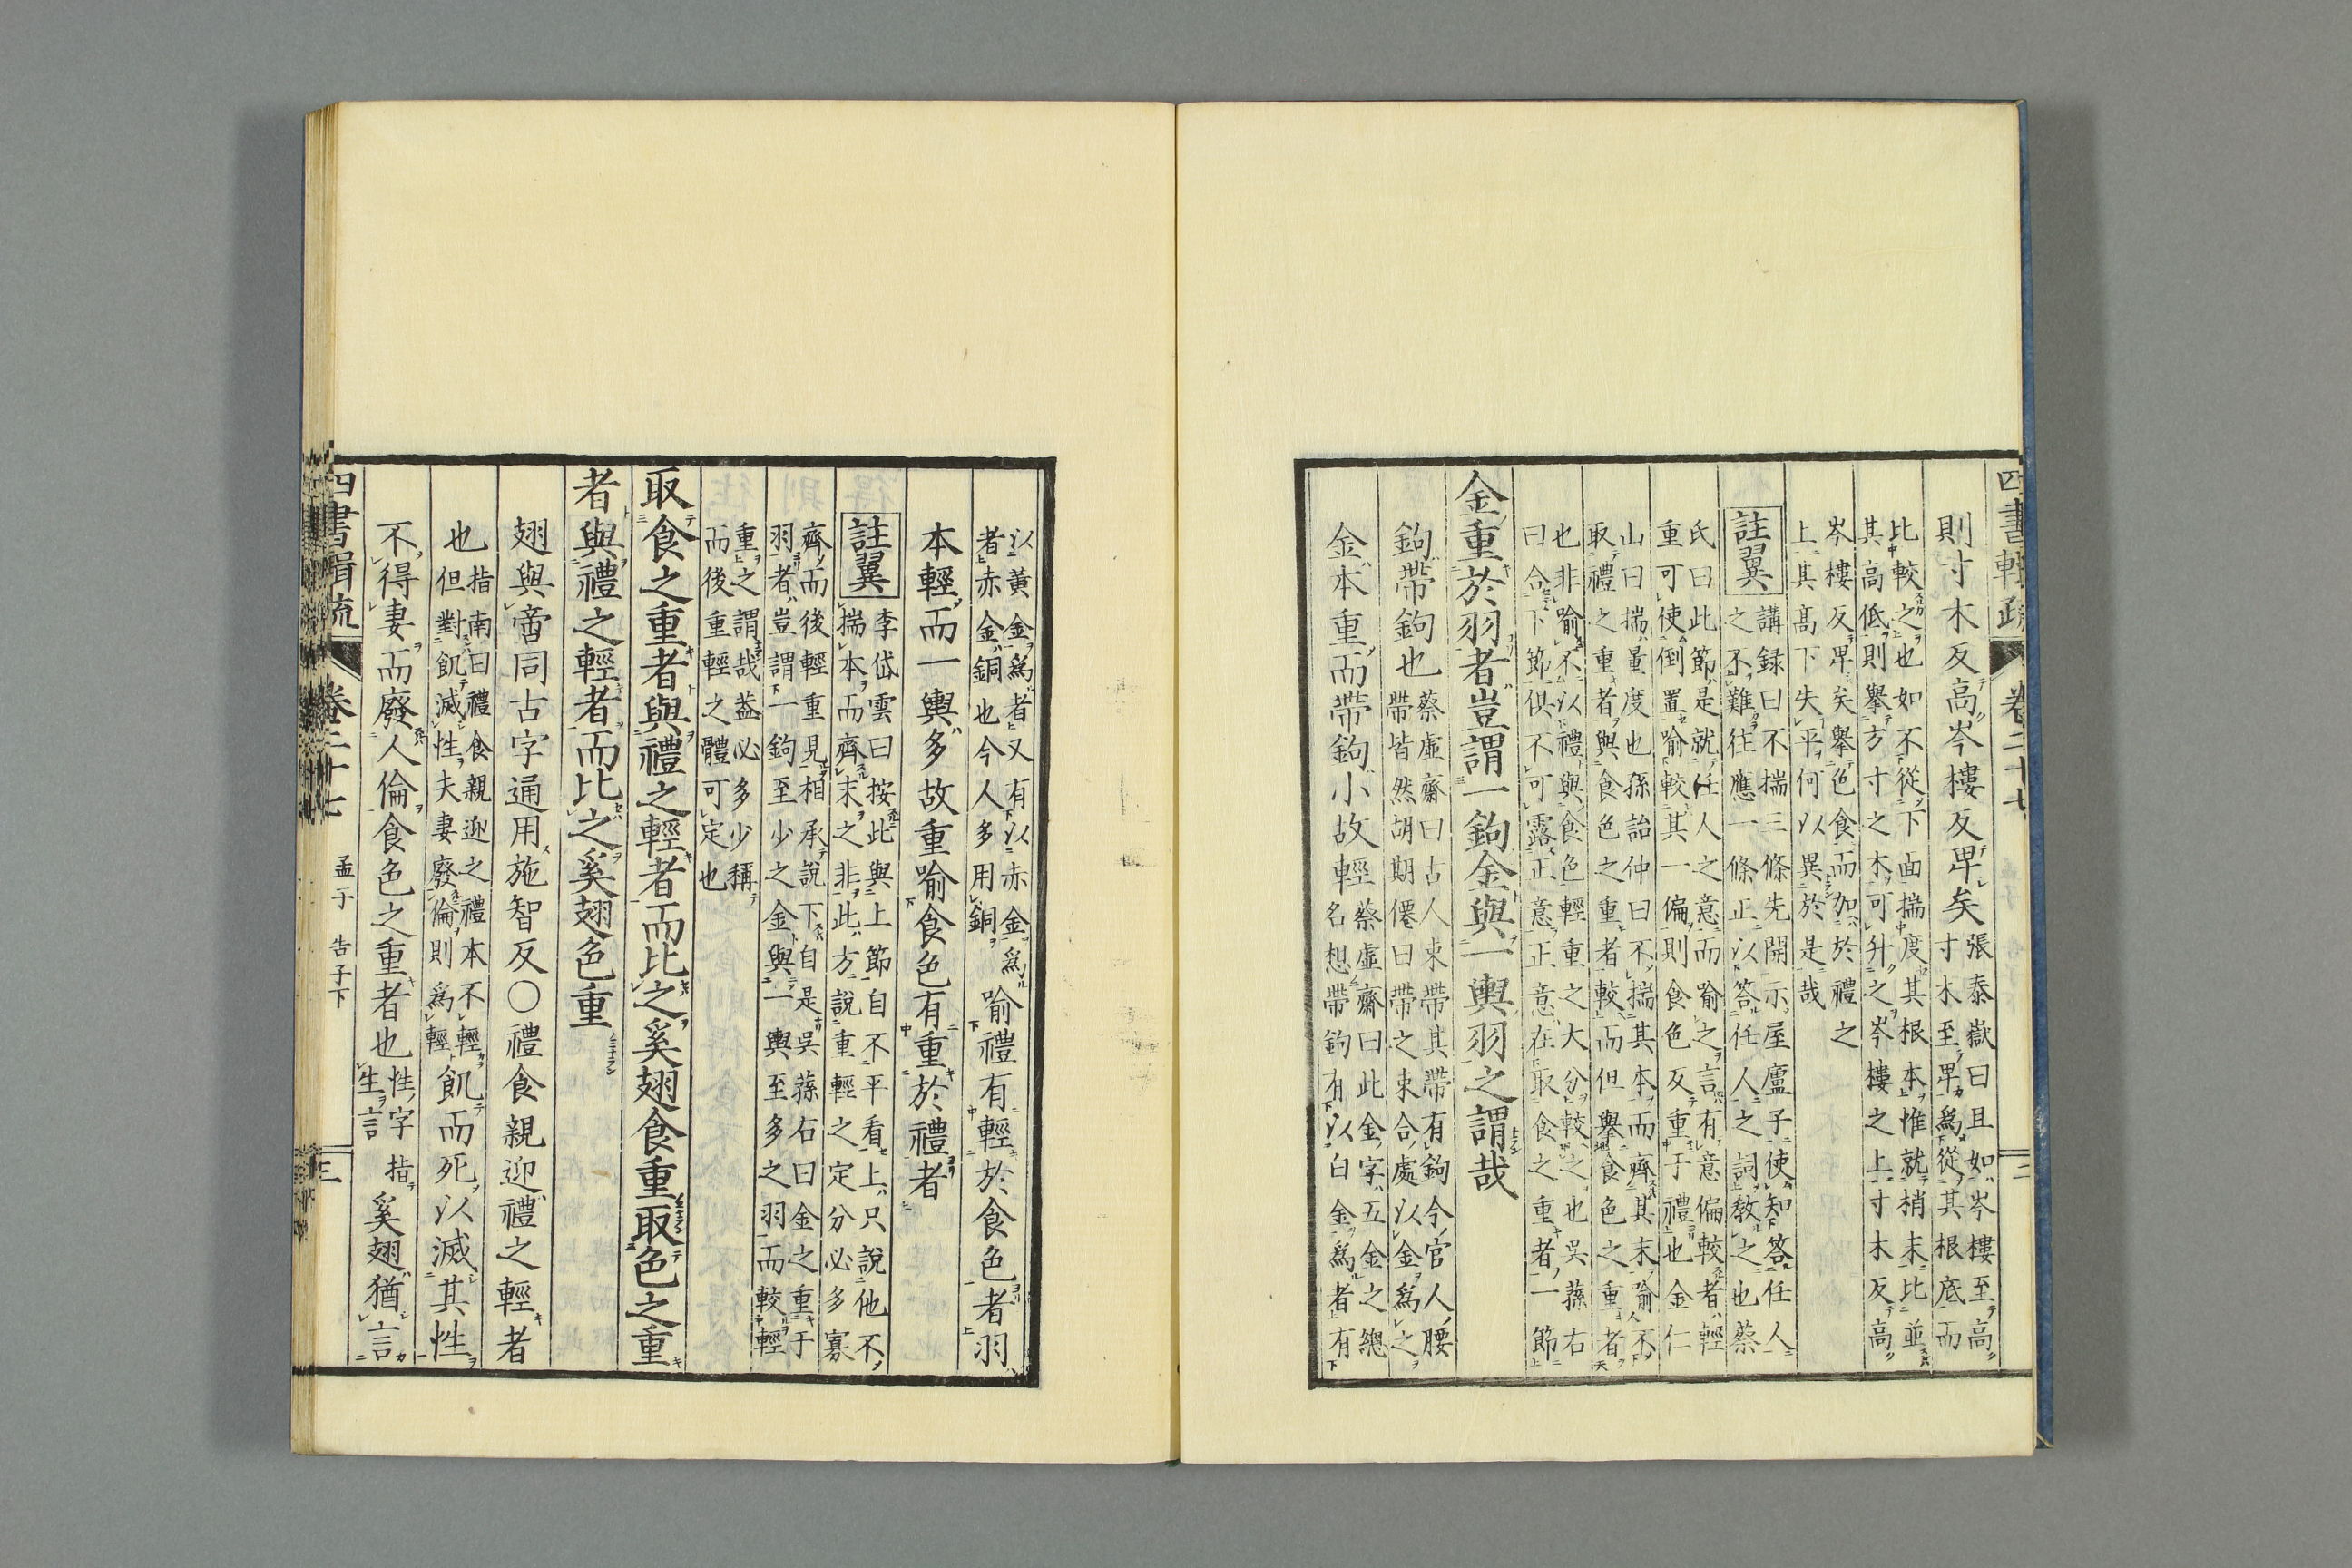 四書輯疏 卷二十七
則寸木反高岑樓反卑矣張泰嶽曰且如岑樓至高
寸木至卑爲從其根底而
比較之也如不從下面揣度其根本惟就梢末比並
其高低則擧方寸之木可升之岑樓之上寸木反高
岑樓反卑矣擧色食而加於禮之
上其高下失平何以異於是哉
註翼講録曰不揣三條先開示屋廬子使知答任人
之不難往應一條正以答任人之詞敎之也蔡
氏曰此節是就任人之意而喻之言有意偏較者輕
重可使倒置喻較其一偏則食色反重于禮也金仁
山曰揣量度也孫詒仲曰不揣其本而齊其末喻不
取禮之重者與食色之重者較而但擧食色之重者
也非喻不以禮與食色輕重之大分較之也吳蓀右
曰合下節俱不可露正意正意在取食之重者一節
金重於羽者豈謂一鉤金與一輿羽之謂哉
鉤帶鉤也蔡虛齋曰古人束帶其帶有鉤今官人腰
帶皆然胡期僊曰帶之束合處以金爲之
金本重而帶鉤小故輕蔡虛齋曰此金字五金之總
名想帶鉤有以白金爲者有
以黃金爲者又有以赤金爲
者赤金銅也今人多用銅喻禮有輕於食色者羽
本輕而一輿多故重喻食色有重於禮者
註翼李岱雲曰按此與上節自不平看上只說他不
揣本而齊末之非此方說重輕之定分必多寡
齊而後輕重見相承說下自是吳蓀右曰金之重于
羽者豈謂一鉤至少之金與一輿至多之羽而較輕
重之謂哉葢必多少稱
而後重輕之體可定也
取食之重者與禮之輕者而比之奚翅食重取色之重
者與禮之輕者而比之奚翅色重
翅與啻同古字通用施智反○禮食親迎禮之輕者
也指南曰禮食親迎之禮本不輕
但對飢滅性夫妻廢倫則爲輕飢而死以滅其性
不得妻而廢人倫食色之重者也性字指
生言奚翅猶言
四書輯疏 卷二十七 孟子 告子下 三